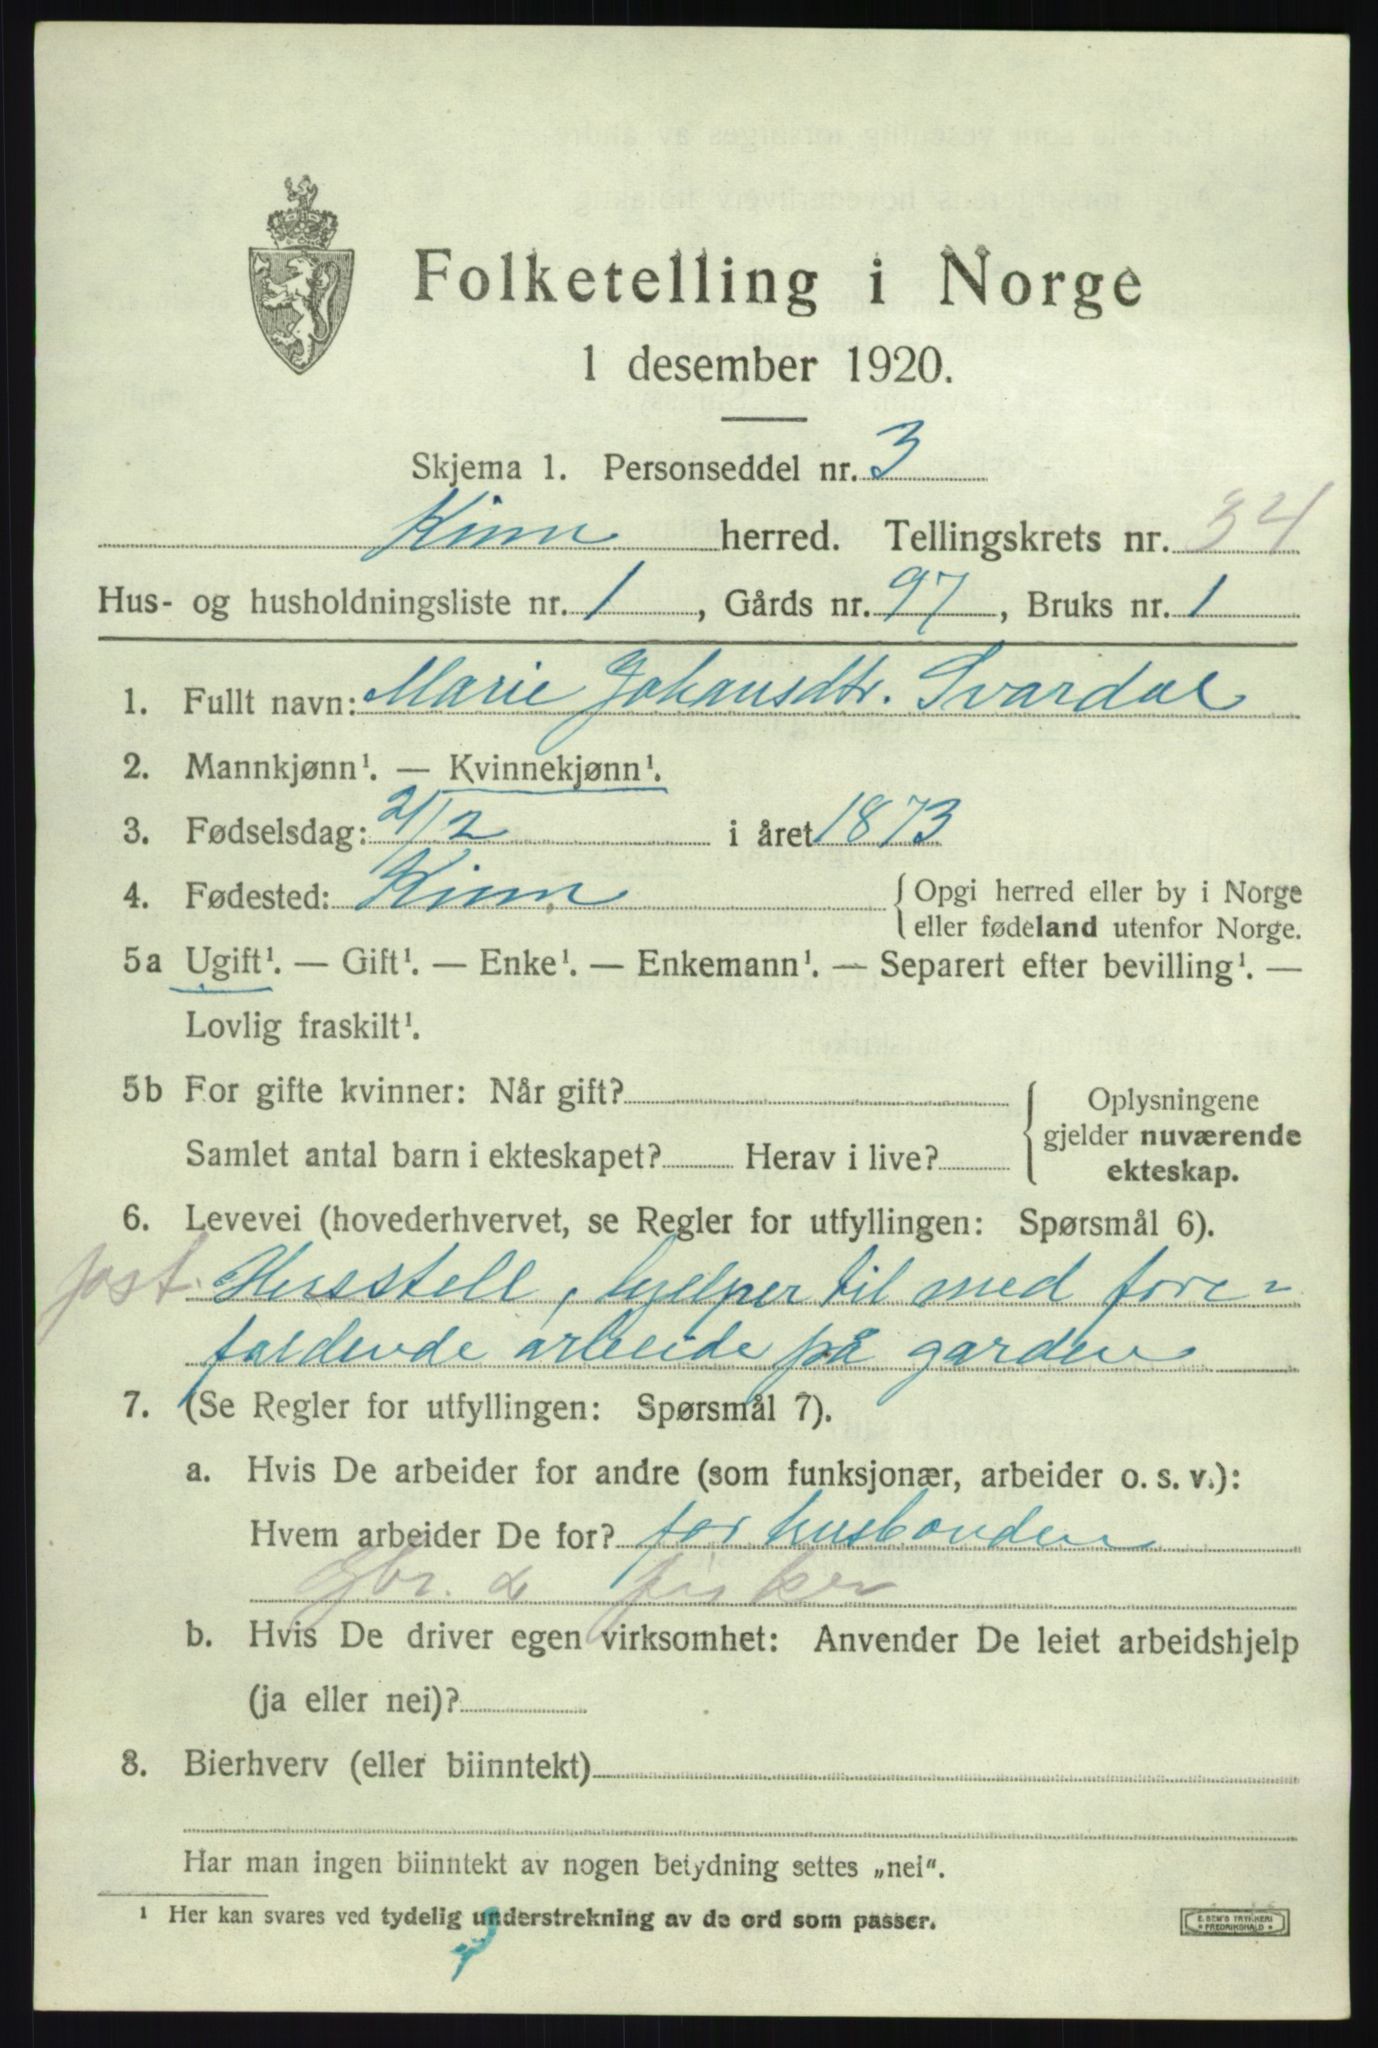 Folketelling i Norge
1 desember 1920.
Skjema 1. Personseddel nr. 3
Kinn herred. Tellingskrets nr. 34
Hus- og husholdningsliste nr. 1, Gårds nr. 97, Bruks nr. 1
1. Fullt navn: Marie Johansdtr. Svardal
2. Mannkjønn¹. — Kvinnekjønn¹.
3. Fødselsdag: 21/2 i året 1873
4. Fødested: Kinn { Opgi herred eller by i Norge
eller fødeland utenfor Norge.
5a Ugift¹. — Gift¹. — Enke¹. — Enkemann¹. — Separert efter bevilling¹. —
Lovlig fraskilt¹.
5b For gifte kvinner: Når gift? { Oplysningene
gjelder nuværende
Samlet antal barn i ekteskapet? Herav i live?
ekteskap.
6. Levevei (hovederhvervet, se Regler for utfyllingen: Spørsmål 6).
Husstell, hjelper til med fore-
faldende arbeide på garden
7. (Se Regler for utfyllingen: Spørsmål 7).
a. Hvis De arbeider for andre (som funksjonær, arbeider o. s. v.):
Hvem arbeider De for? for husbonden
Gbr. & fisker
b. Hvis De driver egen virksomhet: Anvender De leiet arbeidshjelp
(ja eller nei)?
8. Bierhverv (eller biinntekt)
Har man ingen biinntekt av nogen betydning settes „nei".
¹ Her kan svares ved tydelig understrekning av de ord som passer.
E. SEM'S TRYKKERI
* FREDRIKSHALD *